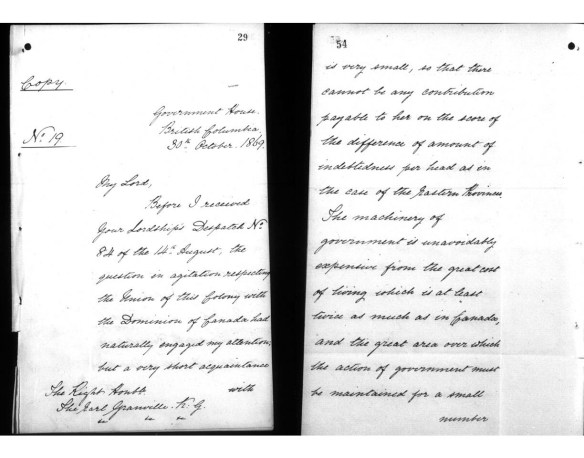 29
Copy
Government House,
British Columbia
30th October. 1869.
No. 19
My Lord,
Before I received
Your Lordship's Despatch No.
84 of the 14th August, the
question in agitation respecting
the Union of this Colony with
the Dominion of Canada had
naturally engaged my attention;
but a very short acquaintance
with
The Right Honble
The Earl Granville. K. G.
" " "
54
is very small, so that there
cannot be any contribution
payable to her on the score of
the difference of amount of
indebtedness per head as in
the case of the Eastern Provinces.
The machinery of
government is unavoidably
expensive from the great cost
of living which is at least
twice as much as in Canada,
and the great area over which
the action of government must
be maintained for a small
number